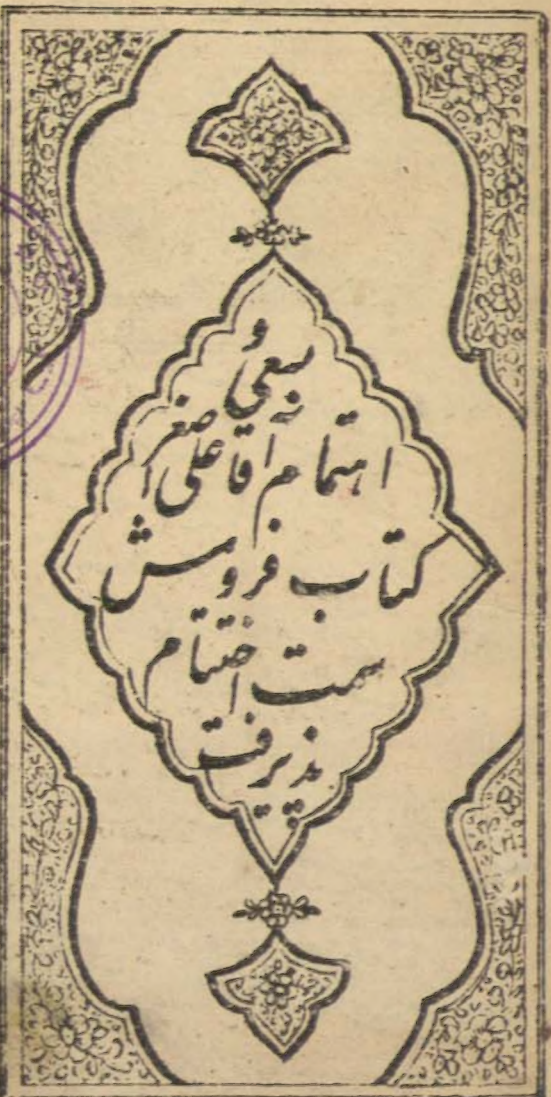 بسعی و
اهتمام آقا علی اصغر
کتاب فروش
سمت اختتام
پذیرفت